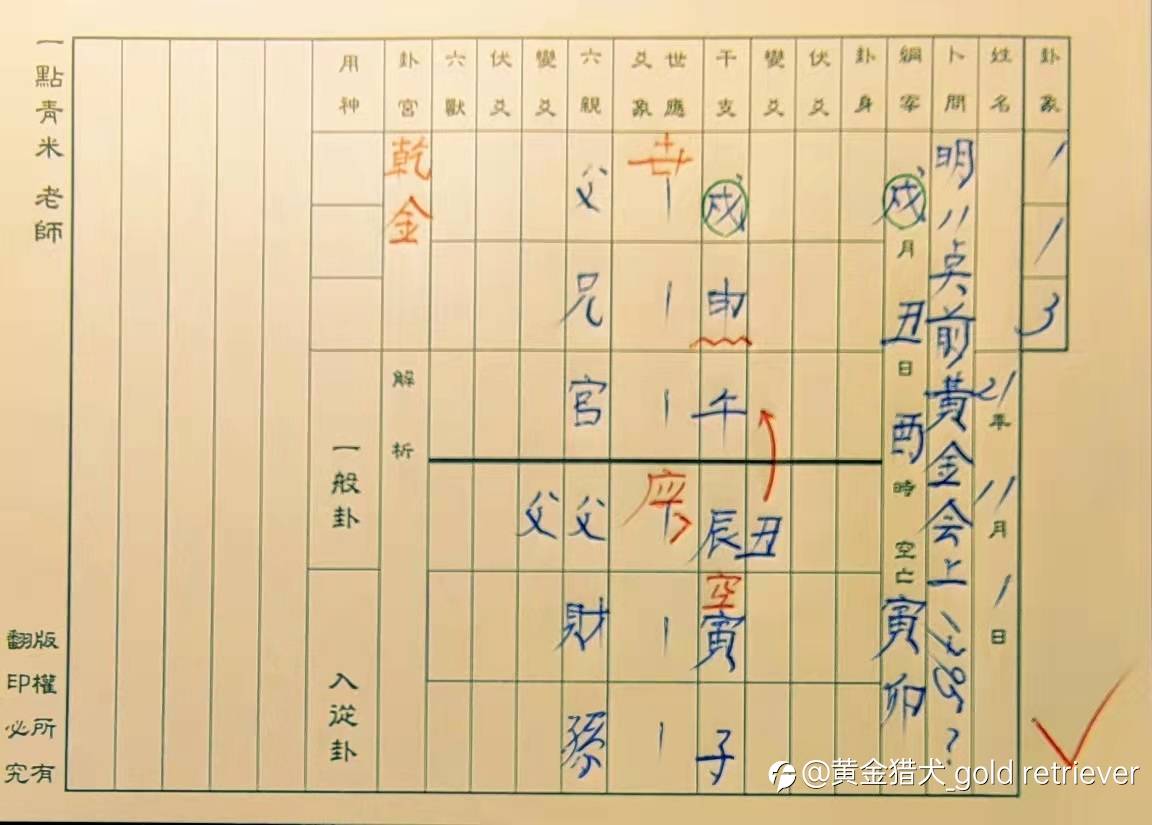 卦象
1
1
3
姓名
21年
11月
1日
卜問
明11点前黃金会上
?
綱宰
戍月
丑日
酉時
空亡
寅卯
卦身
伏爻
變爻
干支
戍
申
午
辰丑
空
寅
子
世應
爻象
世
應
六親
父
兄
官
父
財
孫
變爻
父
伏爻
六獸
卦宮
乾金
解析
用神
一般卦
入從卦
一點青米老師
版權所有
翻印必究
@黄金猎犬_gold retriever